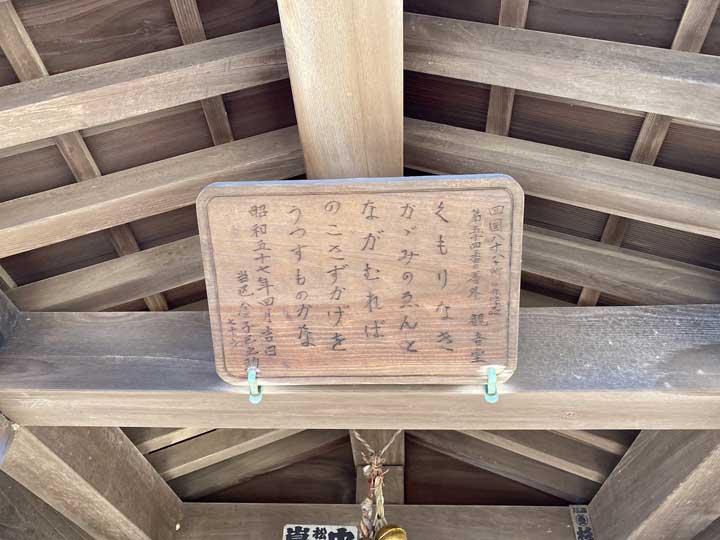 四国八十八ヶ所
第五十四番 観音堂
くもりなき
かゞみのゑんと
ながむれば
のこさずかげを
うつすものかな
昭和五十七年四月吉日
松